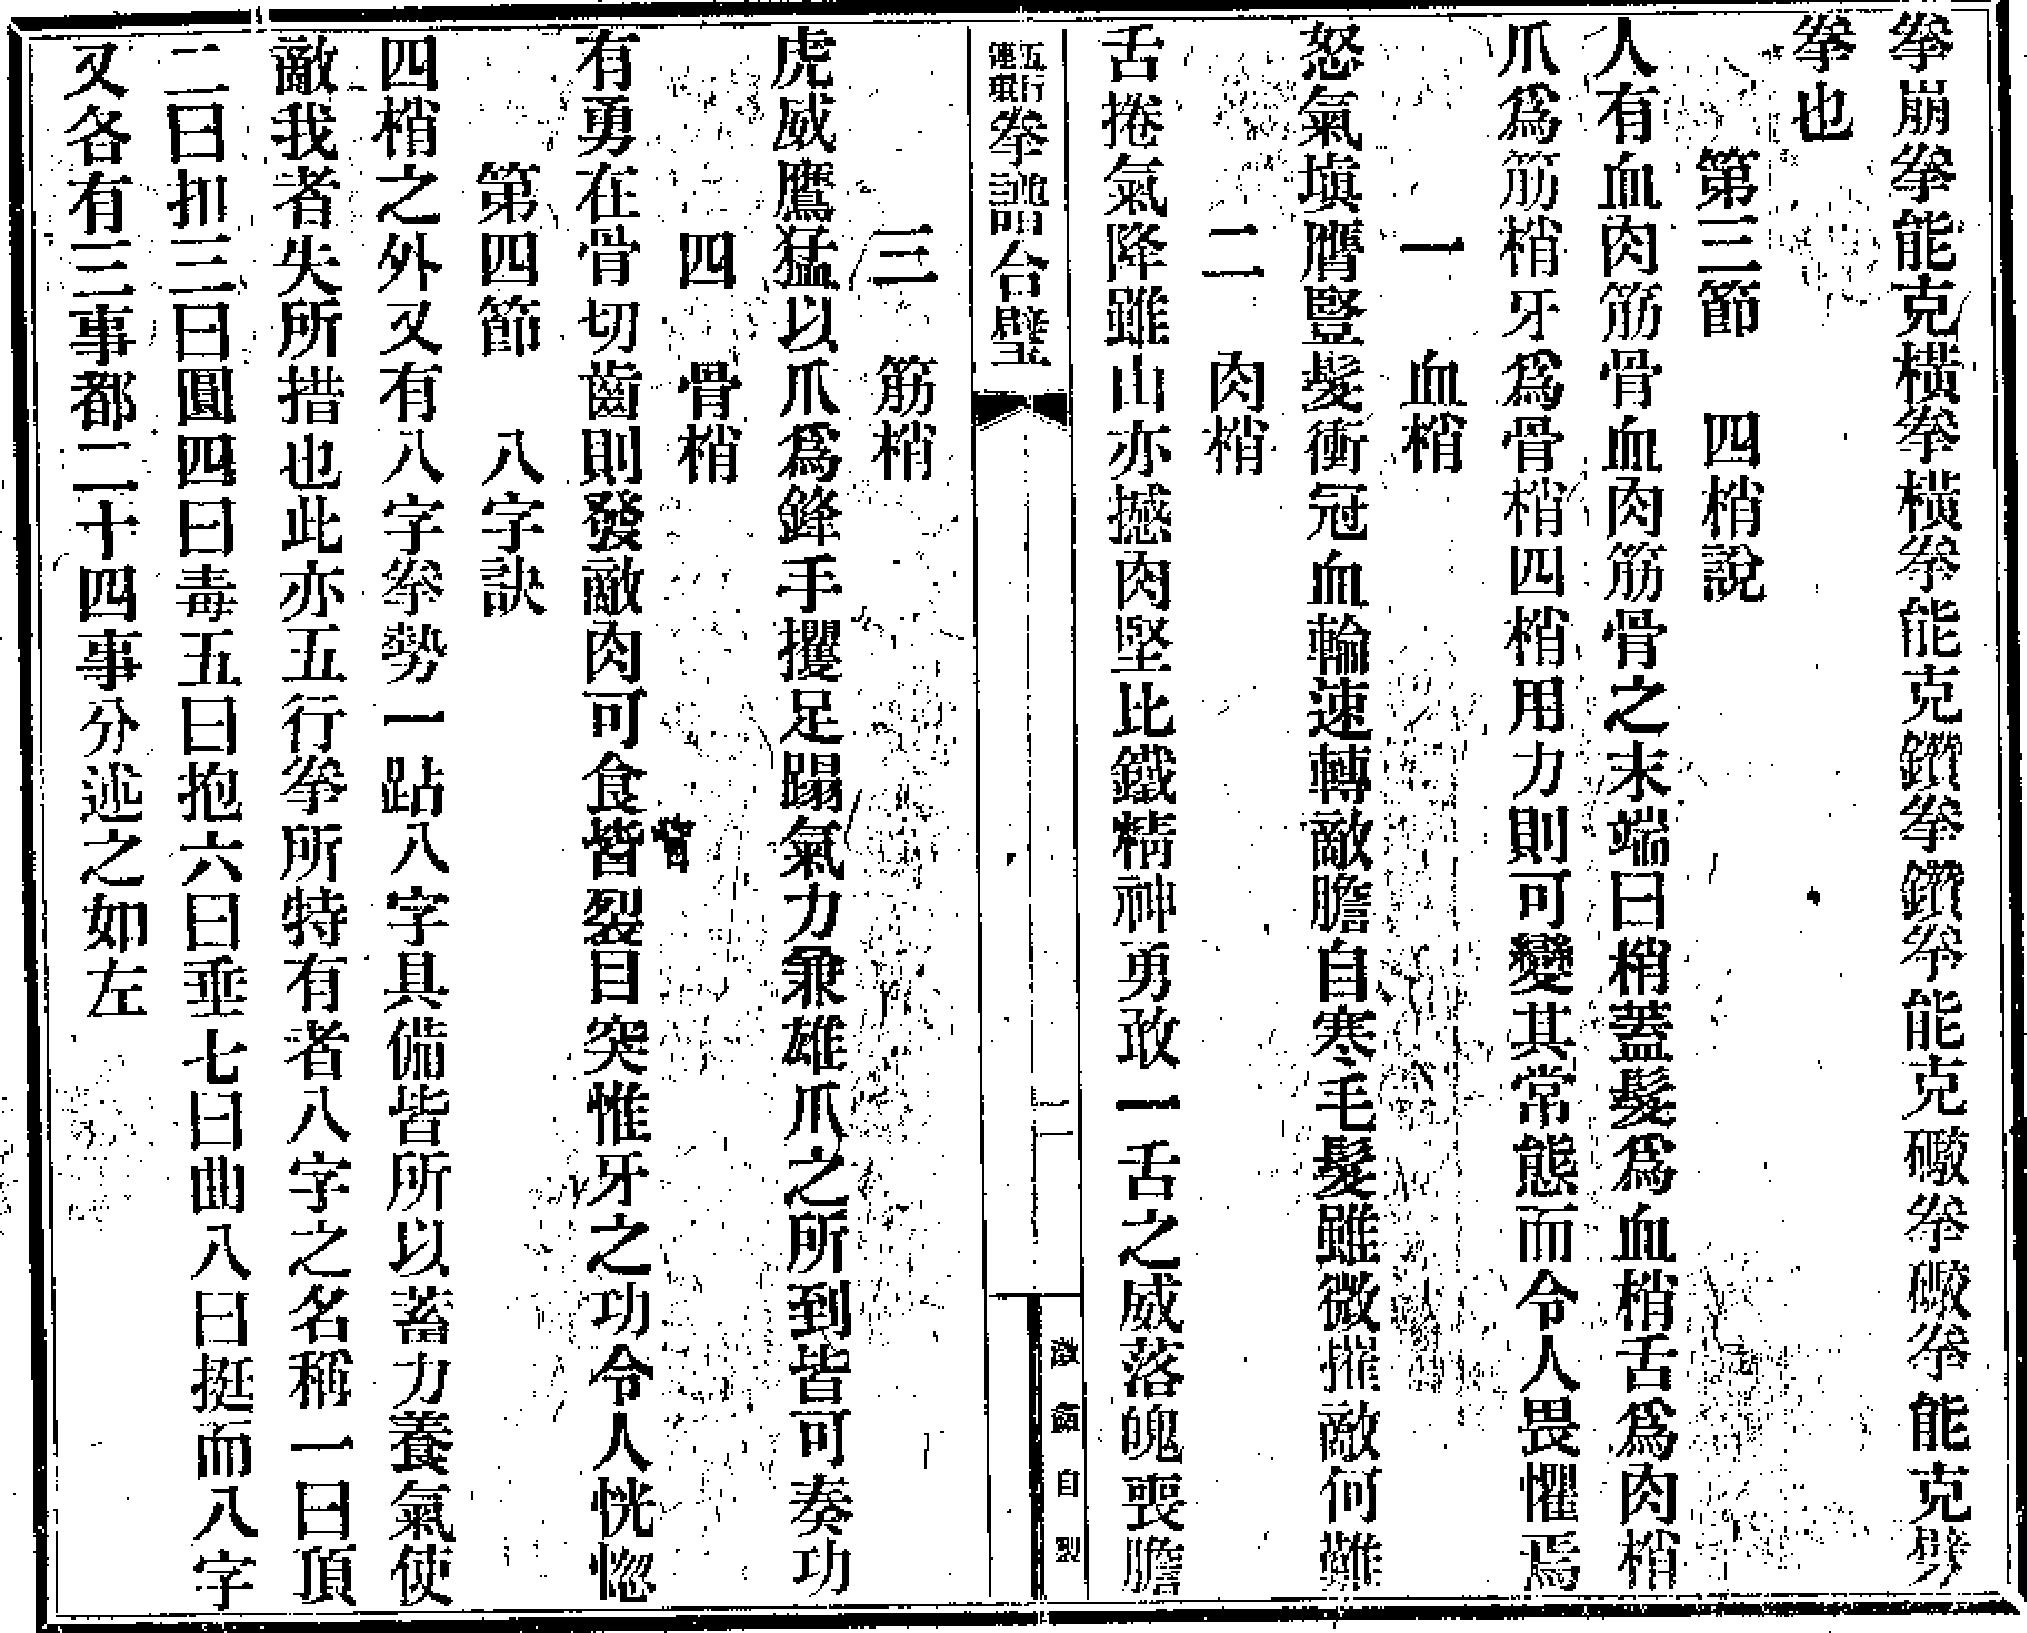 拳崩拳能克橫拳橫拳能克鑽拳鑽拳能克礮拳礮拳能克劈
拳也
第三節　四梢說
人有血肉筋骨血肉筋骨之末端曰梢蓋髮爲血梢舌爲肉梢
爪爲筋梢牙爲骨梢四梢用力則可變其常態而令人畏懼焉
一　血梢
怒氣塡膺豎髮衝冠血輪速轉敵膽自寒毛髮雖微摧敵何難
二　肉梢
舌捲氣降雖山亦撼肉堅比鐵精神勇敢一舌之威落魄喪膽
五行連環拳譜合璧
二
自製
三　筋梢
虎威鷹猛以爪爲鋒手攫足蹋氣力兼雄爪之所到皆可奏功
四　骨梢
有勇在骨切齒則發敵肉可食皆裂目突惟牙之功令人恍惚
眥
第四節　八字訣
四梢之外又有八字拳勢一跕八字具備皆所以蓄力養氣使
敵我者失所措也此亦五行拳所特有者八字之名稱一曰頂
二曰扣三曰圓四曰毒五曰抱六曰垂七曰曲八曰挺而八字
又各有三事都二十四事分述之如左